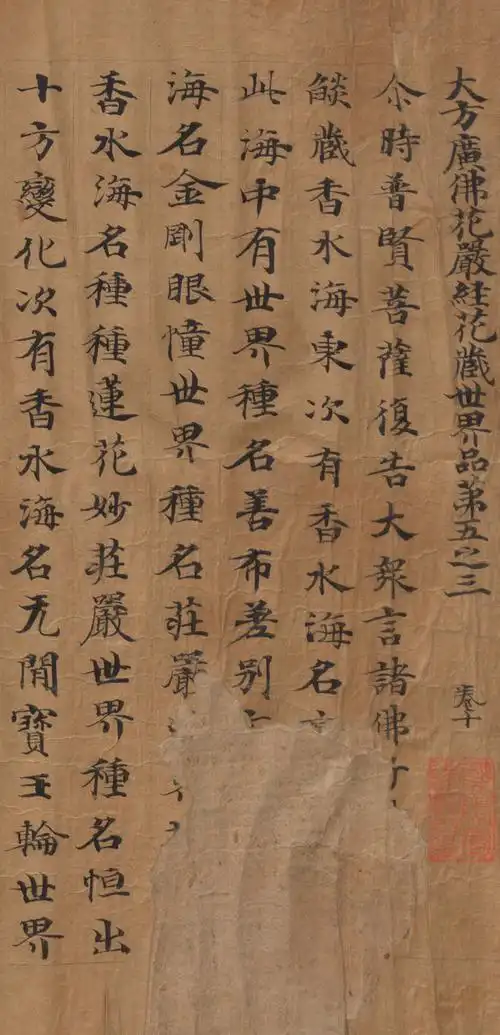 大方廣佛花嚴經花藏世界品第五之三 卷十
尒時普賢菩薩復告大衆言諸佛
燄藏香水海東次有香水海名
此海中有世界種名善布差別
海名金剛眼幢世界種名莊嚴
香水海名種種蓮花妙莊嚴世界種名恒出
十方變化次有香水海名无閒寶王輪世界